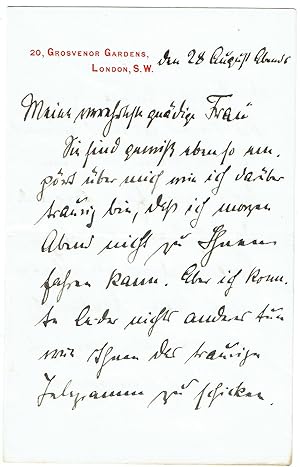 20, Grosvenor Gardens,
London, S.W.
den 28 August Abends
Meine verehrteste gnädige Frau
Sie sind gewiß ebenso em-
pört über mich wie ich darüber
traurig bin, daß ich morgen
Abend nicht zu Ihnen
fahren kann. Aber ich konn-
te leider nichts anderes tun
wie Ihnen das traurige
Telegramm zu schicken.